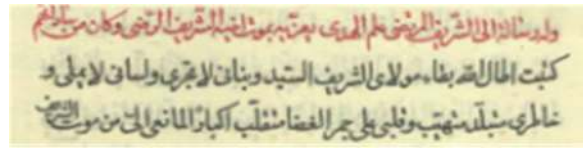 وله رسالة الى الشريف المرتضى علم الهدى يعزيه بموت اخيه الشريف الرضى وكان من
كتبت اطال الله بقاء مولاى الشريف السيد وبنانى لا تجرى ولسانى لا يملى و
خاطرى متبلد متهيب وقلبى على جمر الغضا متقلب اكبارًا لما نعى الى من موت الشريف